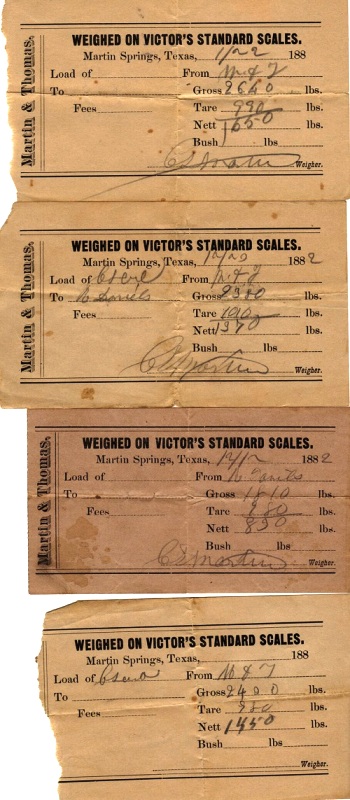 Martin & Thomas.
WEIGHED ON VICTOR'S STANDARD SCALES.
Martin Springs, Texas, 1/22 188
Load of From M & T
To Gross 2640 lbs.
Fees Tare 990 lbs.
Nett 1650 lbs.
Bush lbs
Weigher.
Martin & Thomas.
WEIGHED ON VICTOR'S STANDARD SCALES.
Martin Springs, Texas, 1882
Load of From M & T
To Gross 2380 lbs.
Fees Tare 1010 lbs.
Nett 1370 lbs.
Bush lbs
C S Martin Weigher.
Martin & Thomas.
WEIGHED ON VICTOR'S STANDARD SCALES.
Martin Springs, Texas, 12/12 1882
Load of From
To Gross lbs.
Fees Tare lbs.
Nett 830 lbs.
Bush lbs
C S Martin Weigher.
WEIGHED ON VICTOR'S STANDARD SCALES.
Martin Springs, Texas, 188
Load of From M & T
To Gross 2400 lbs.
Fees Tare lbs.
Nett 1450 lbs.
Bush lbs
Weigher.